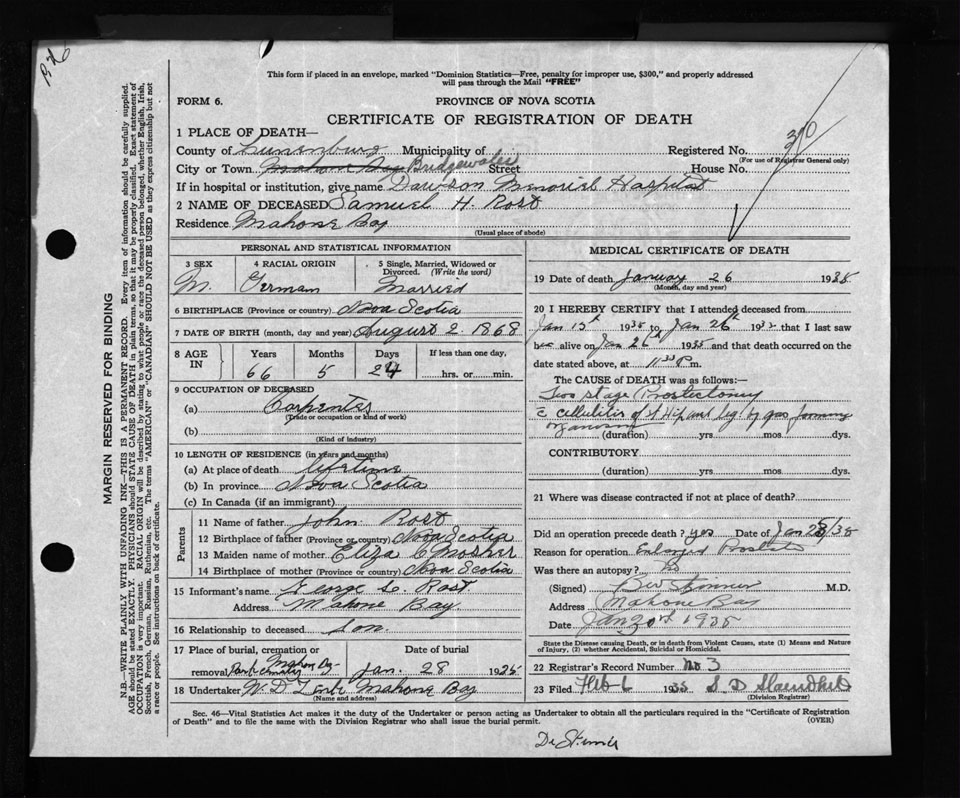 This form if placed in an envelope, marked "Dominion Statistics—Free, penalty for improper use, $300," and properly addressed
will pass through the Mail "FREE"
FORM 6.
PROVINCE OF NOVA SCOTIA
CERTIFICATE OF REGISTRATION OF DEATH
30
1 PLACE OF DEATH—
County of Lunenburg Municipality of Registered No.
(For use of Registrar General only)
City or Town Mahone Bay Bridgewater Street House No.
If in hospital or institution, give name Dawson Memorial Hospital
2 NAME OF DECEASED Samuel H. Rost
Residence Mahone Bay
(Usual place of abode)
MARGIN RESERVED FOR BINDING
N.B.—WRITE PLAINLY WITH UNFADING INK—THIS IS A PERMANENT RECORD. Every item of information should be carefully supplied.
AGE should be stated EXACTLY. PHYSICIANS should STATE CAUSE OF DEATH in plain terms, so that it may be properly classified. Exact statement of
OCCUPATION is very important. RACIAL ORIGIN will be described by stating to what people or race the deceased person belonged, whether English, Irish,
Scottish, French, German, Russian, Ruthenian, etc. The terms "AMERICAN" or "CANADIAN" SHOULD NOT BE USED as they express citizenship but not
a race or people. See instructions on back of certificate.
PERSONAL AND STATISTICAL INFORMATION
3 SEX
M.
4 RACIAL ORIGIN
German
5 Single, Married, Widowed or
Divorced. (Write the word)
Married
6 BIRTHPLACE (Province or country) Nova Scotia
7 DATE OF BIRTH (month, day and year) August 2 1868
8 AGE
IN
Years Months Days If less than one day,
66 5 24 hrs. or min.
9 OCCUPATION OF DECEASED
(a) Carpenter
(Trade or occupation or kind of work)
(b)
(Kind of industry)
10 LENGTH OF RESIDENCE (in years and months)
(a) At place of death lifetime
(b) In province Nova Scotia
(c) In Canada (if an immigrant)
Parents
11 Name of father John Rost
12 Birthplace of father (Province or country) Nova Scotia
13 Maiden name of mother Eliza C Mosher
14 Birthplace of mother (Province or country) Nova Scotia
15 Informant's name George L. Rost
Address Mahone Bay
16 Relationship to deceased Son.
17 Place of burial, cremation or Date of burial
removal, Park Cemetery Mahone Bay Jan. 28 1935
18 Undertaker W. D. Mahone Bay
(Name and address)
MEDICAL CERTIFICATE OF DEATH
19 Date of death January 26 1935
(Month, day and year)
20 I HEREBY CERTIFY that I attended deceased from
Jan 15th 1935 to Jan 26th 1935 that I last saw
alive on Jan 26th 1935 and that death occurred on the
date stated above, at 11 30 P m.
The CAUSE OF DEATH was as follows:—
Two stage Prostectomy
c cellulitis of Hip and leg by gas forming
organism
(duration) yrs mos. dys.
CONTRIBUTORY
(duration) yrs. mos. dys.
21 Where was disease contracted if not at place of death?
Did an operation precede death? yes Date of Jan 23/35
Reason for operation Enlarged Prostate
Was there an autopsy? No
(Signed) M.D.
Address Mahone Bay
Date Jan 1935
State the Disease causing Death, or in death from Violent Causes, state (1) Means and Nature
of Injury, (2) whether Accidental, Suicidal or Homicidal.
22 Registrar's Record Number No 3
23 Filed Feb 1935 S. D.
(Division Registrar)
Sec. 46—Vital Statistics Act makes it the duty of the Undertaker or person acting as Undertaker to obtain all the particulars required in the "Certificate of Registration
of Death" and to file the same with the Division Registrar who shall issue the burial permit.
(OVER)